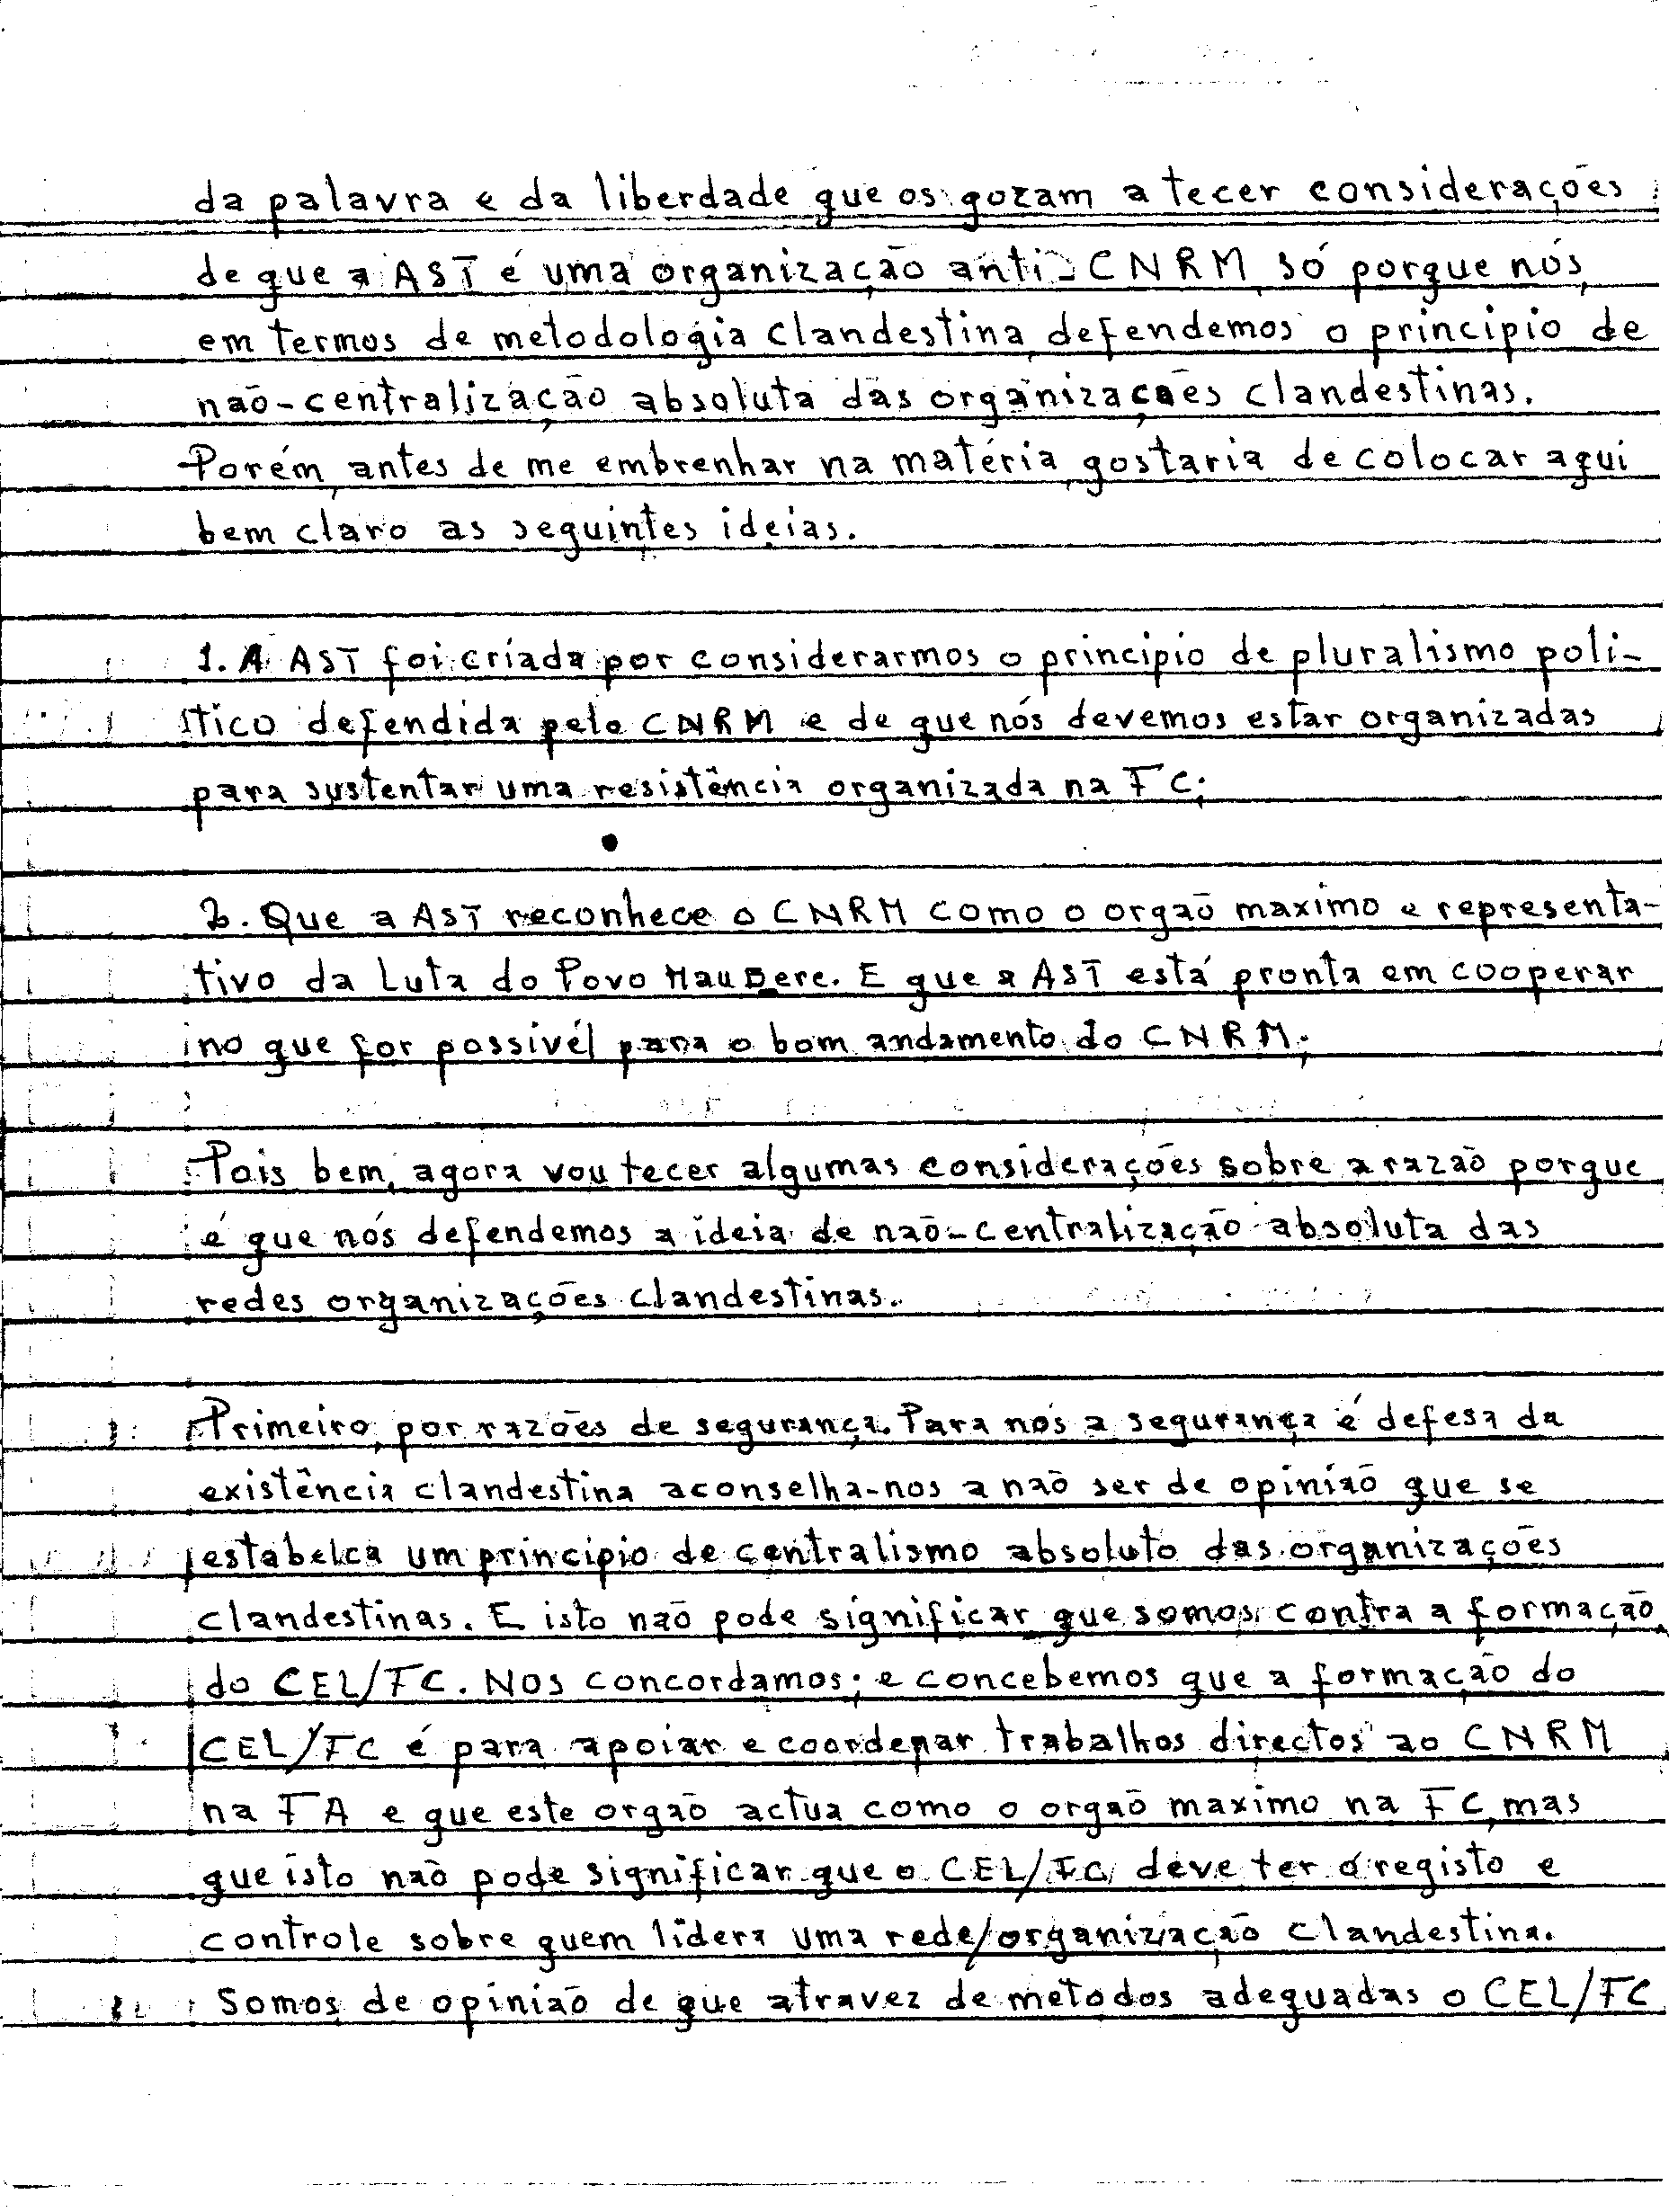 da palavra e da liberdade que os gozam a tecer considerações
de que a AST é uma organização anti-CNRM, só porque nós,
em termos de metodologia clandestina, defendemos o principio de
não-centralização absoluta das organizações clandestinas.
Porém, antes de me embrenhar na matéria, gostaria de colocar aqui
bem claro as seguintes ideias.
1. A AST foi criada por considerarmos o principio de pluralismo poli-
tico defendida pelo CNRM e de que nós devemos estar organizadas
para sustentar uma resistência organizada na FC;
2. Que a AST reconhece o CNRM como o orgão maximo e representa-
tivo da Luta do Povo MauBere. E que a AST está pronta em cooperar
no que for possivél para o bom andamento do CNRM;
Pois bem, agora vou tecer algumas considerações sobre a razão porque
é que nós defendemos a ideia de não-centralização absoluta das
redes organizações clandestinas.
Primeiro, por razões de segurança. Para nós a segurança é defesa da
existência clandestina aconselha-nos a não ser de opinião que se
estabelca um principio de centralismo absoluto das organizações
clandestinas. E isto não pode significar que somos contra a formação
do CEL/FC. Nos concordamos; e concebemos que a formação do
CEL/FC é para apoiar e coordenar trabalhos directos ao CNRM
na FA e que este orgão actua como o orgão maximo na FC, mas
que isto não pode significar que o CEL/FC deve ter o registo e
controle sobre quem lidera uma rede/organização clandestina.
Somos de opinião de que atravez de metodos adequadas o CEL/FC